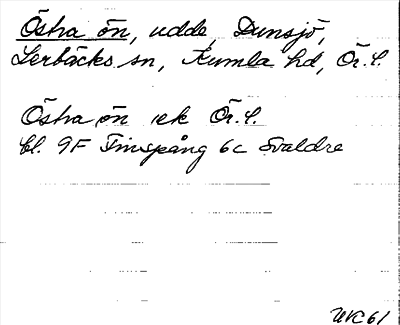 Östra ön, udde, Dunsjö,
Lerbäcks sn, Kumla hd, Ör. l.
Östra ön ek Ör. l.
bl. 9F Finspång 6c Svaldre
UVC 61